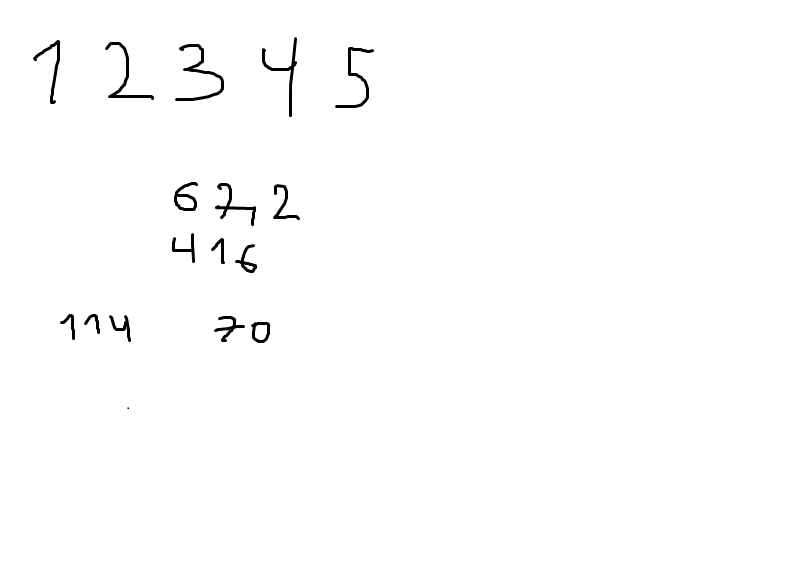 1 2 3 4 5
67,2
416
114 70